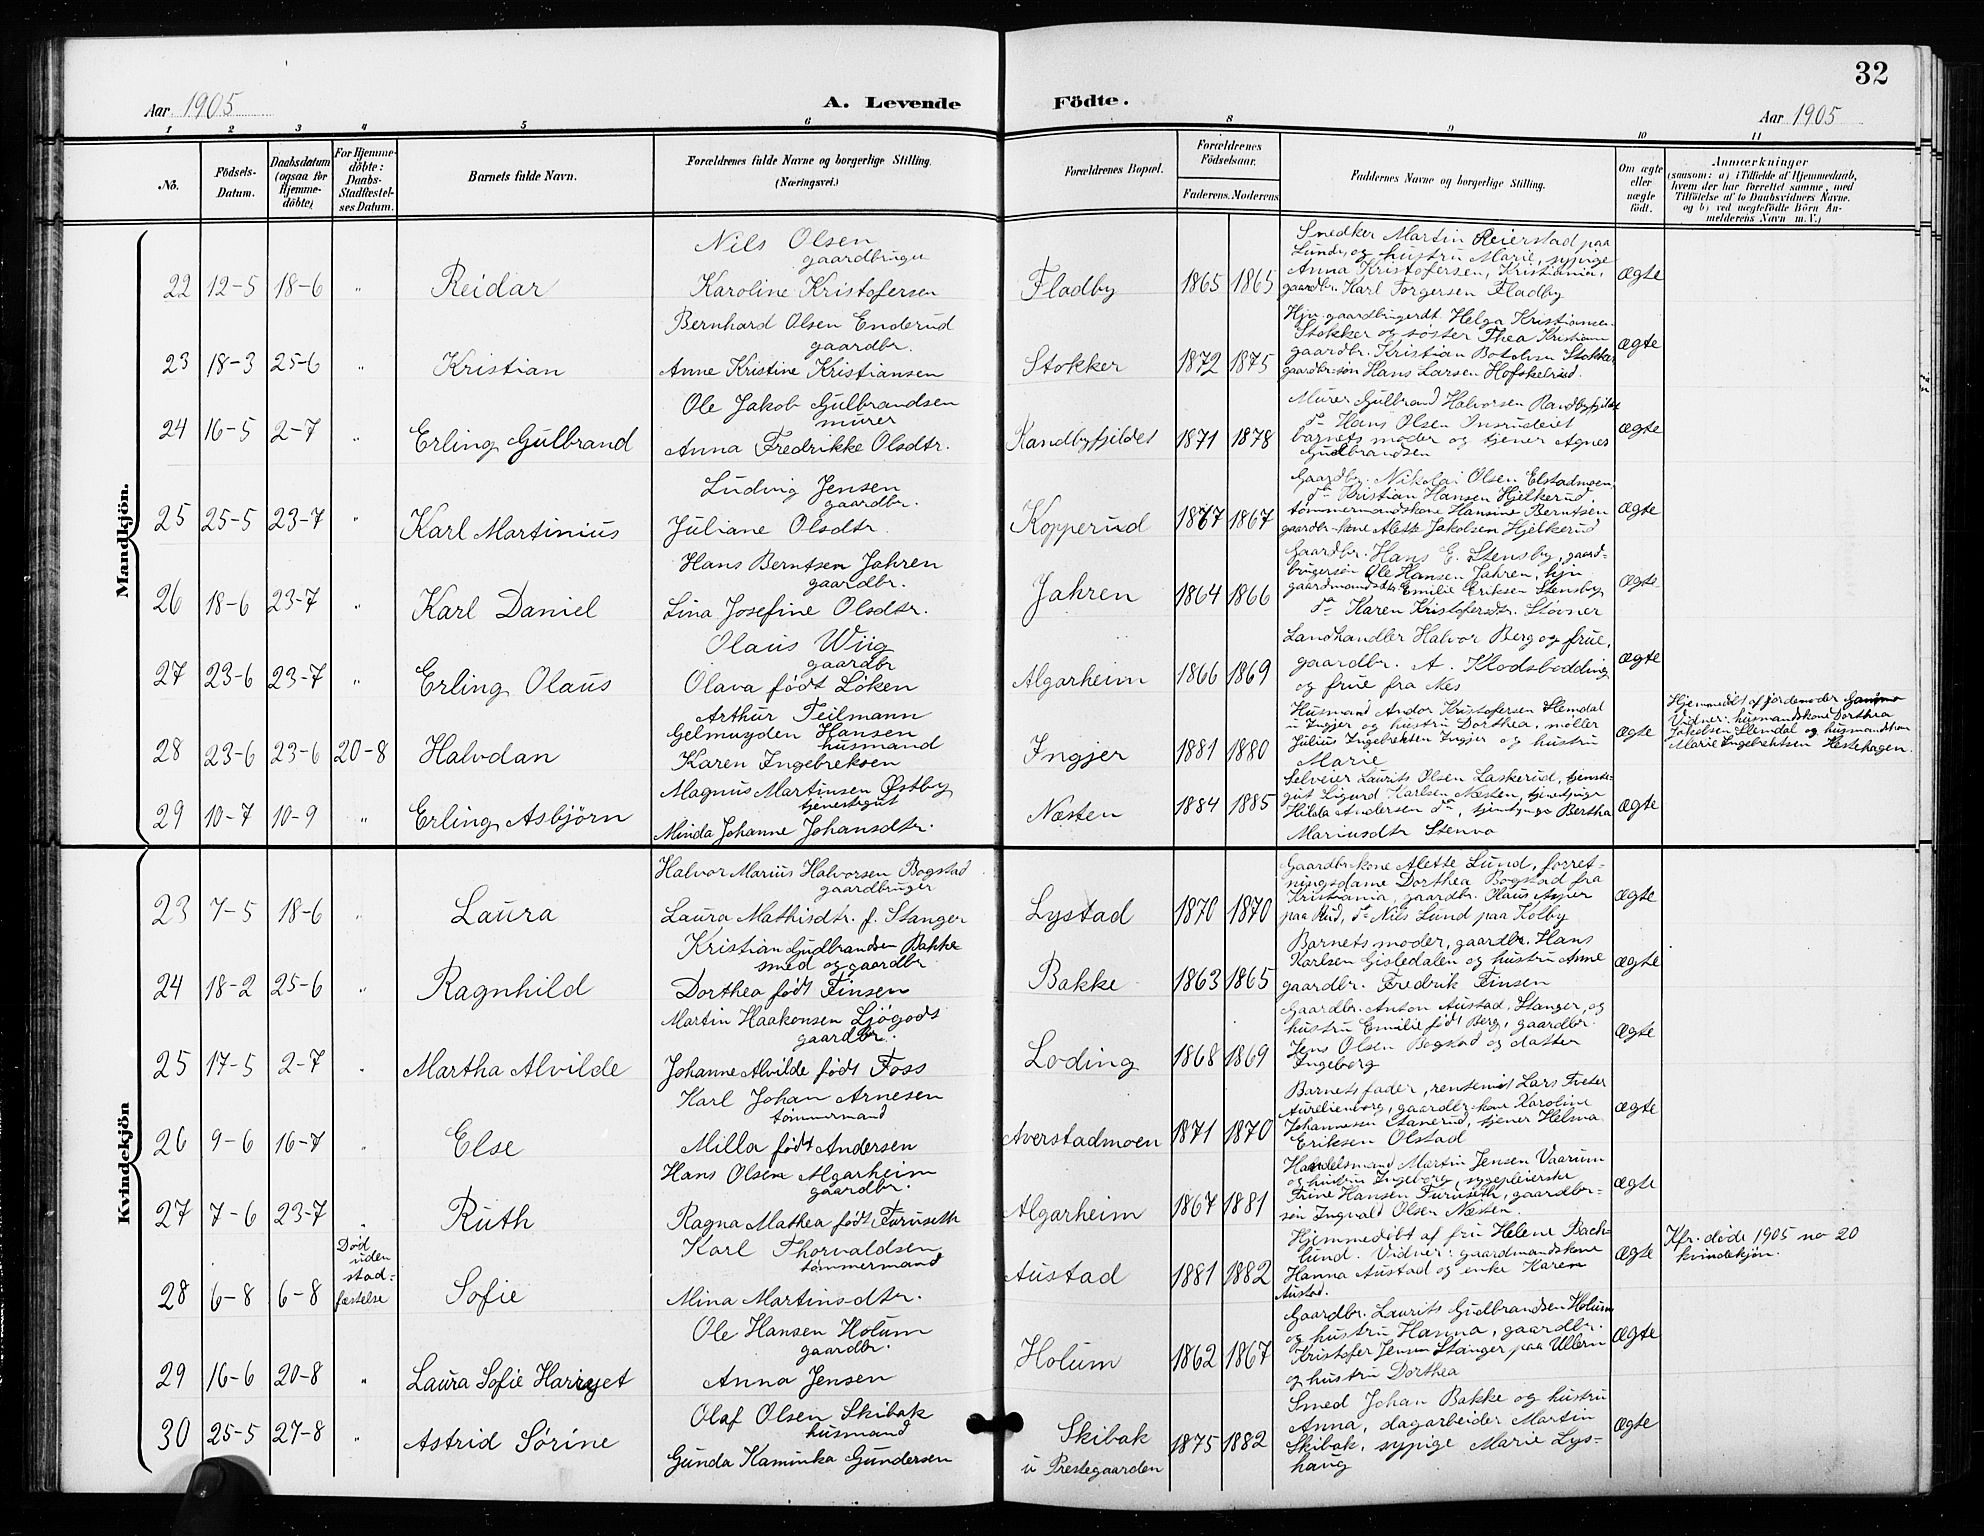 32
Aar 1905
A. Levende
Födte.
Aar 1905
1 2 3 4 5 6 8 9 10 11
No.
Födsels-
Datum.
Daabsdatum
(ogsaa for
Hjemme-
döbte)
For Hjemme-
döbte:
Daabs-
Stadfæstel-
ses Datum.
Barnets fulde Navn.
Forældrenes fulde Navne og borgerlige Stilling.
(Næringsvei.)
Forældrenes Bopæl.
Forældrenes
Födselsaar.
Faderens. Moderens
Faddernes Navne og borgerlige Stilling.
Om ægte
eller
uægte
födt.
Anmærkninger
(saasom: a) i Tilfælde af Hjemmedaab,
hvem der har forrettet samme, med
Tilföielse af to Daabsvidners Navne,
og b) ved uægtefödte Börn An-
melderens Navn m. V.)
Mandkjön.
22 12-5 18-6 " Reidar
Nils Olsen
gaardbruger
Karoline Kristofersen
Fladby 1865 1865
Snedker Martin Reierstad paa
Lunde, og hustru Marie, sypige
Anna Kristofersen, Kristiania,
gaardbr. Karl Torgersen Fladby
Ægte
23 18-3 25-6 " Kristian
Bernhard Olsen Enderud
gaardbr.
Anne Kristine Kristiansen
Stokker 1872 1875
Hjv. gaardbrugerdt Helga Kristiansen
Stokker og söster Thea Kristian
gaardbr. Kristian Botolvsen Stokker
gaardbr-sön Hans Larsen Hofskelrud.
Ægte
24 16-5 2-7 " Erling Gulbrand
Ole Jakob Gulbrandsen
murer
Anna Fredrikke Olsdtr.
Randbyfjildet 1871 1878
Murer Gulbrand Halvorsen Randbyfjildet
do Hans Olsen Insrudeiet
barnets moder og tjener Agnes
Gulbrandsen
Ægte
25 25-5 23-7 " Karl Martinius
Ludvig Jensen
gaardbr.
Juliane Olsdtr.
Kopperud 1867 1867
Gaardbr. Nikolai Olsen Elstadmoen,
do Kristian Hansen Hjelkerud,
tömmermandskone Hansine Berntsen
gaardbr-kone Alette Jakobsen Hjelkerud
Ægte
26 18-6 23-7 " Karl Daniel
Hans Berntsen Jahren
gaardbr.
Lina Josefine Olsdtr.
Jahren 1864 1866
Gaardbr. Hans E. Stensby, gaard-
brugersön Ole Hansen Jahren, hjv
gaardmandsdtr Emilie Eriksen Stensby
do Karen Kristofersdtr. Stövner
Ægte
27 23-6 23-7 " Erling Olaus
Olaus Wiig
gaardbr
Olava födt Löken
Algarheim 1866 1869
Landhandler Halvor Berg og frue,
gaardbr. A. Klodsbodding
og frue fra Nes
Ægte
28 23-6 23-6 20-8 Halvdan
Arthur Teilmann
Gelmuyden Hansen
husmand
Karen Ingebretsen
Ingjer 1881 1880
Husmand Andor Kristofersen Slemdal
u Ingjer og hustru Dorthea, möller
Julius Ingebretsen Ingjer og hustru
Marie
Ægte
Hjemmedöbt af jordemoder
Vidner: husmandskone Dorthea
Jakobsen Slemdal og husmandskone
Marie Ingebretsen Hestehagen.
29 10-7 10-9 " Erling Asbjörn
Magnus Martinsen Østby
tjenestegut
Minda Johanne Johansdtr.
Næsten 1884 1885
Selveier Laurits Olsen Laskerud, tjeneste-
gut Sigurd Karlsen Næsten, tjenepige
Hilda Andersen do, tjenepige Bertha
Mariusdtr Stenvo
Ægte
Kvindekjön
23 7-5 18-6 " Laura
Halvor Marius Halvorsen Bogstad
gaardbruger
Laura Mathisdtr. f. Stanger
Lystad 1870 1870
Gaardbr-kone Alette Lund, forret-
ningsdame Dorthea Bogstad fra
Kristiania, gaardbr. Olaus Asper
paa Rud, do Nils Lund paa Kolby
Ægte
24 18-2 25-6 " Ragnhild
Kristian Gudbrandsen Bakke
smed og gaardbr
Dorthea födt Finsen
Bakke 1863 1865
Barnets moder, gaardbr. Hans
Karlsen Gisledalen og hustru Anne
gaardbr. Fredrik Finsen
Ægte
25 17-5 2-7 " Martha Alvilde
Martin Haakonsen Ljögods
gaardbr.
Johanne Alvilde födt Foss
Loding 1868 1869
Gaardbr. Anton Austad, Stanger, og
hustru Emilie födt Berg, gaardbr.
Jens Olsen Bogstad og datter
Ingeborg
Ægte
26 9-6 16-7 " Else
Karl Johan Arnesen
tömmermand
Milla födt Andersen
Averstadmoen 1871 1870
Barnets fader, rentenist Lars Tveter
Aurelienborg, gaardbr-kone Karoline
Johannessen Stanerud, tjener Helma
Eriksen Olstad
Ægte
27 7-6 23-7 " Ruth
Hans Olsen Algarheim
gaardbr.
Ragna Mathea födt Furuseth
Algarheim 1867 1881
Handelsmand Martin Jensen Vaarum
og hustru Ingeborg, sygepleierske
Trine Hansen Furuseth, gaardbr-
sön Ingvald Olsen Næsten.
Ægte
28 6-8 6-8
Död
uden
stad-
fæstelse
Sofie
Karl Thorvaldsen
tömmermand
Mina Martinsdtr.
Austad 1881 1882
Hjemmedöbt af fru Helene Bach-
lund. Vidner: gaardmandskone
Hanna Austad og enke Karen
Austad.
Ægte
Kfr. döde 1905 no 20
kvindekjön.
29 16-6 20-8 " Laura Sofie Harryet
Ole Hansen Holum
gaardbr.
Anna Jensen
Holum 1862 1867
Gaardbr. Laurits Gudbrandsen Holum
og hustru Hanna, gaardbr.
Kristofer Jensen Stanger paa Ullern
og hustru Dorthea
Ægte
30 25-5 27-8 " Astrid Sörine
Olaf Olsen Skibak
husmand
Gunda Kaminka Gundersen
Skibak
u Prestegaarden
1875 1882
Smed Johan Bakke og hustru
Anna, dagarbeider Martin
Skibak, sypige Marie Lys-
haug
Ægte